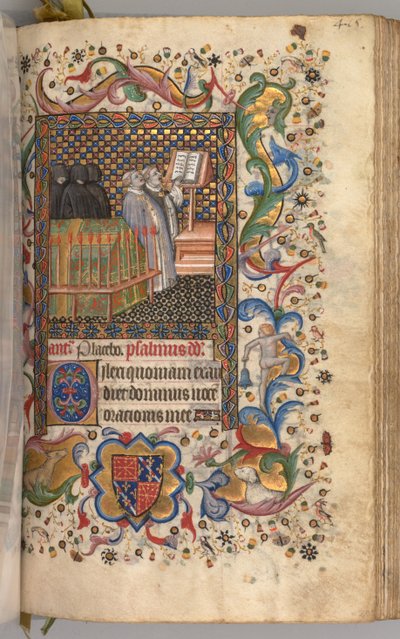 ant. Placebo. psalmus dd.
Dilexi quoniam exau
diet dominus voce
oracionis mee